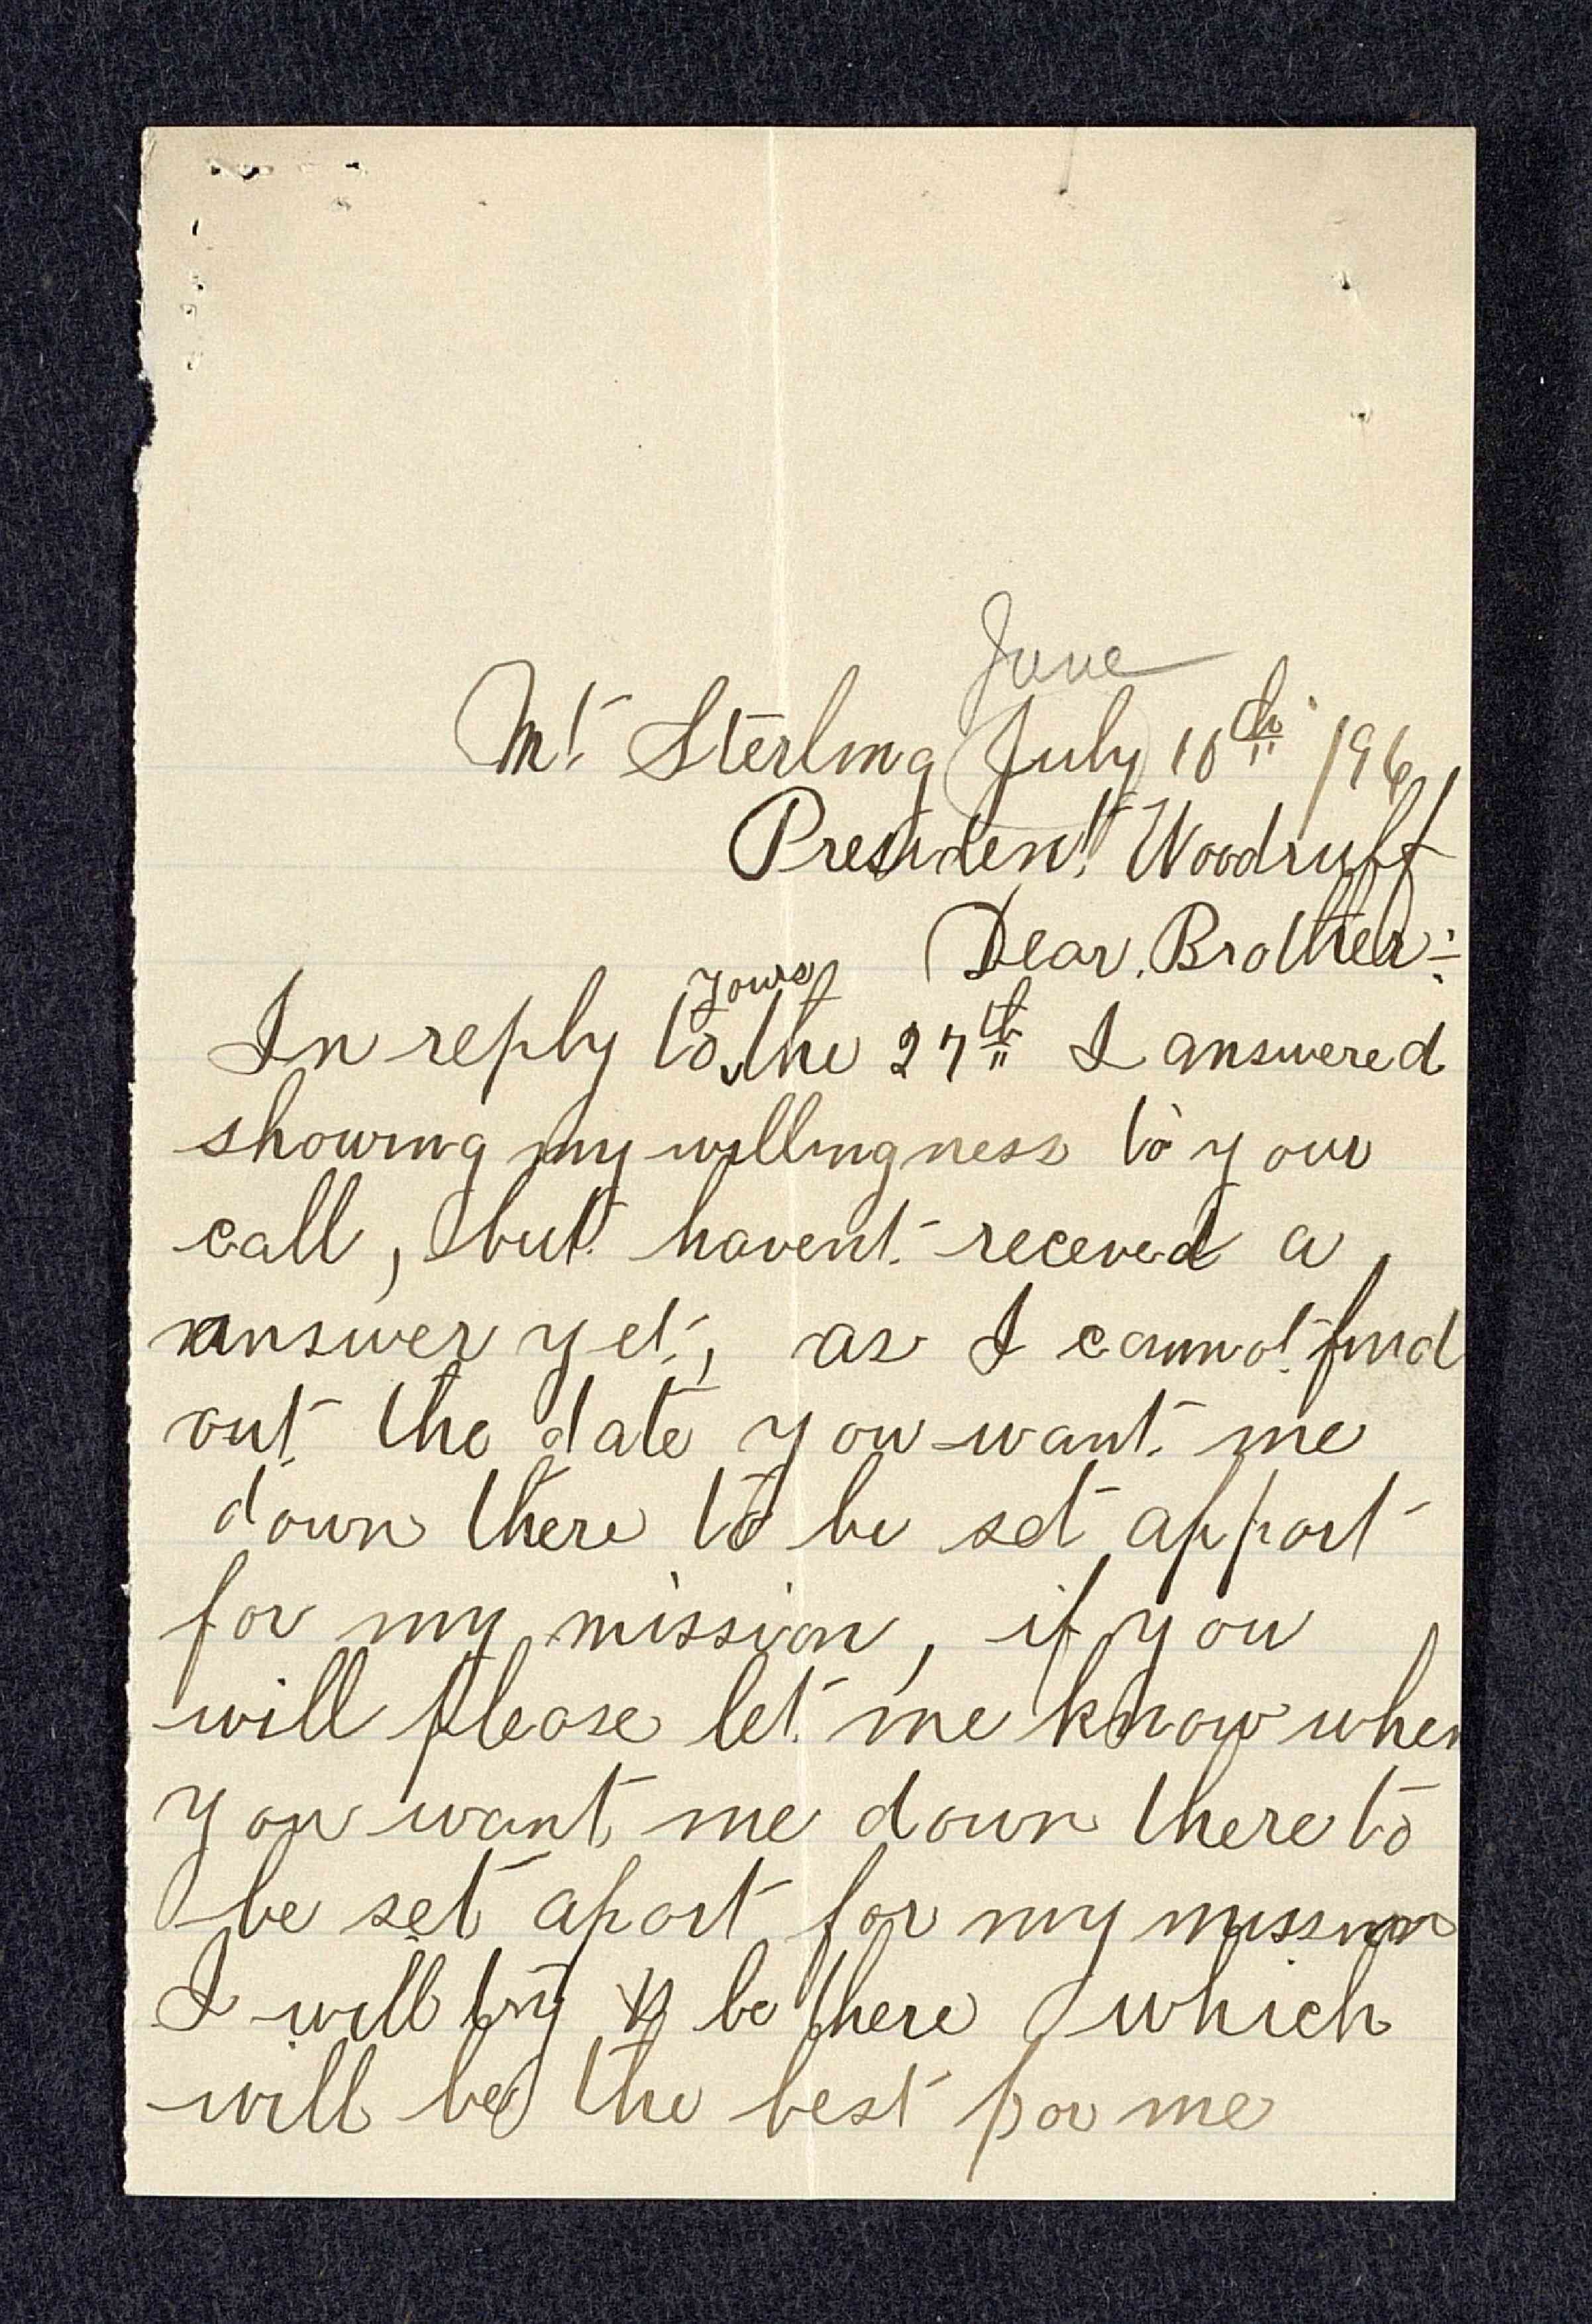 June
Mt Sterling July 10th /96
President Woodruff
Dear Brother:-
yours
In reply to the 27th I answered
showing my willingness to your
call, but havent receved a
answer yet, as I cannot find
out the date you want me
down there to be set appart
for my mission, if you
will please let me know when
you want me down there to
be set apart for my mission
I will try to be there which
will be the best for me